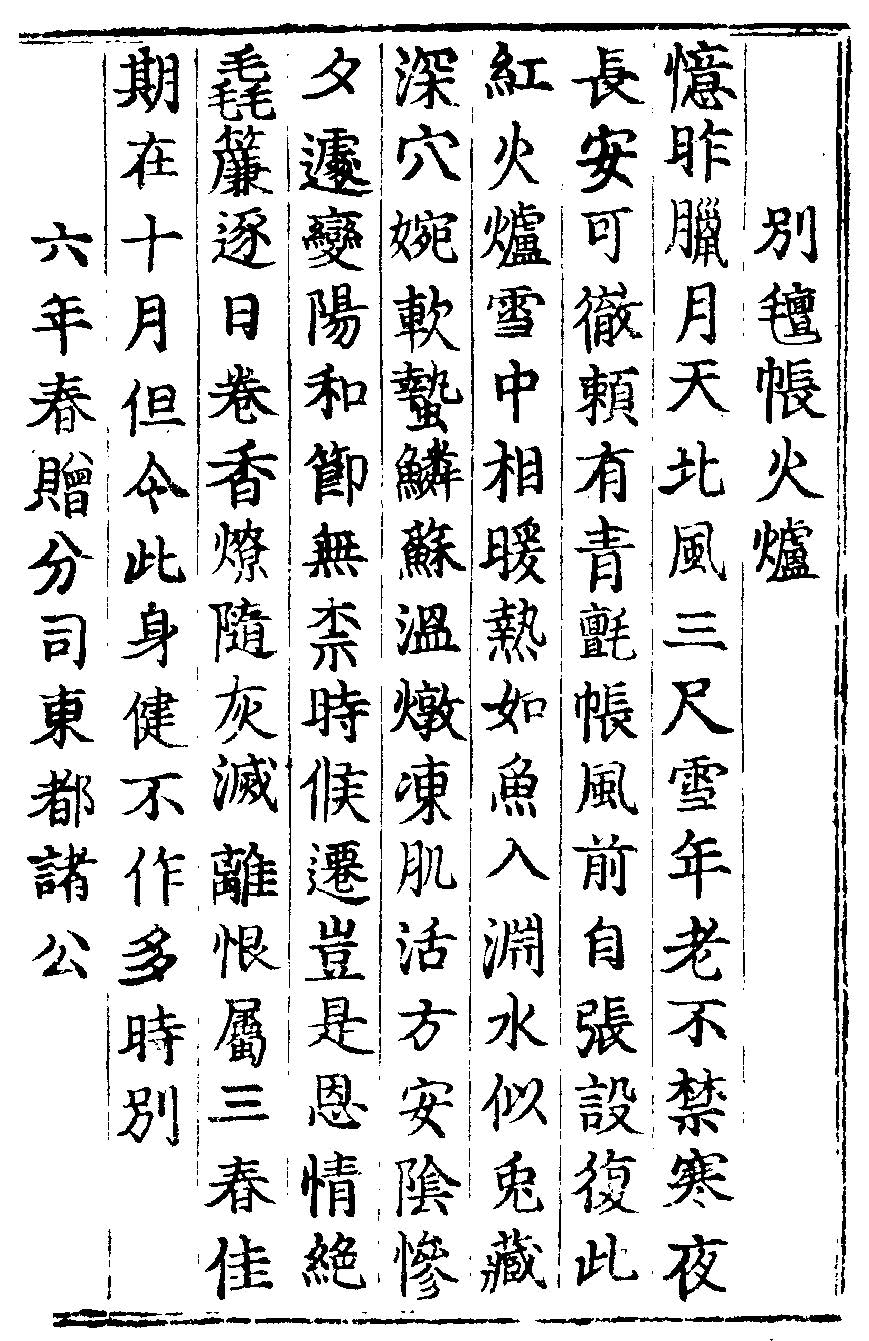 別氊帳火爐
憶昨臘月天北風三尺雪年老不禁寒夜
長安可徹頼有青氈帳風前自張設復此
紅火爐雪中相暖熱如魚入淵水似兎藏
深穴婉軟蟄鱗蘇溫燉凍肌活方安陰慘
夕遽變陽和節無柰時候遷豈是恩情絕
毳簾逐日卷香燎隨灰滅離恨屬三春佳
期在十月但令此身健不作多時別
六年春贈分司東都諸公